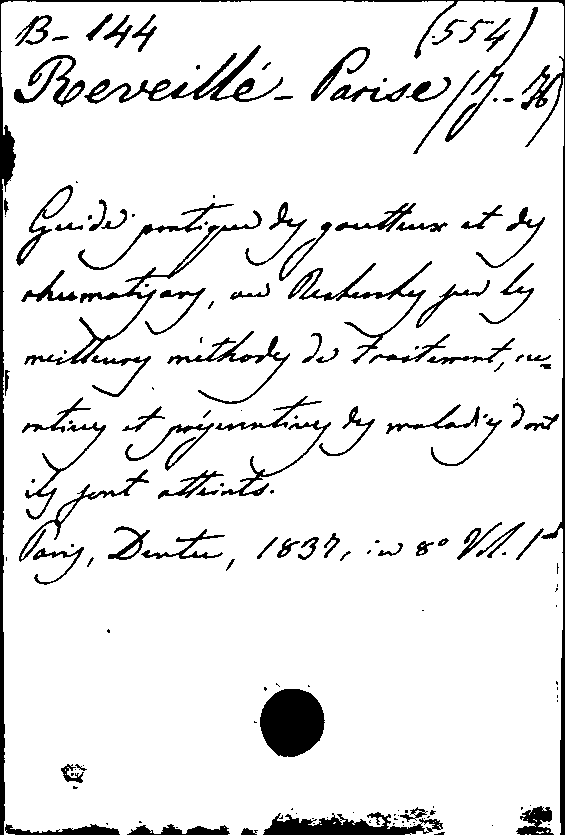 B-144 (554)
Reveillé-Parise (J.-H)
Guide pratique des goutteux et des
rhumatisans, ou Recherches sur les
meilleures méthodes de traitement, cu-
ratives et préservatives des maladies dont
ils sont atteints.
Paris, Dentu, 1837, in 8° Vol. 1